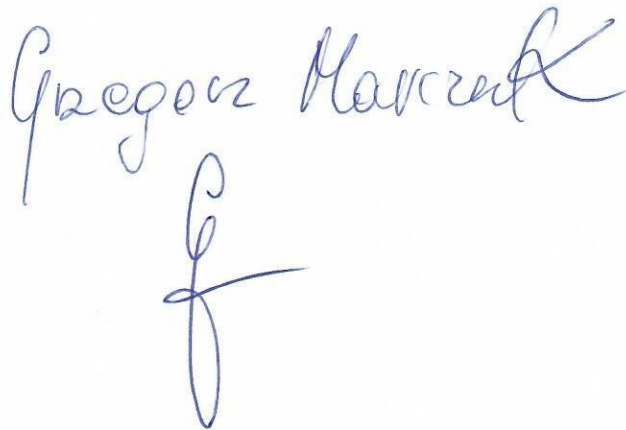 Grzegorz Marczuk